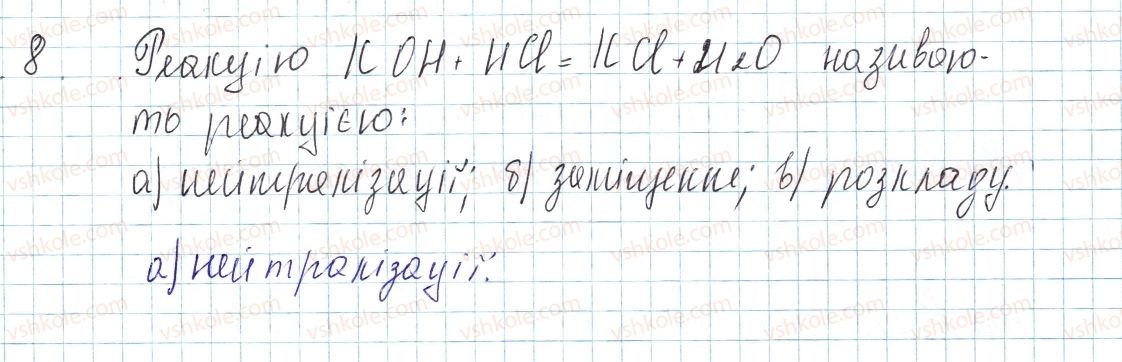 8. Реакцію KOH + HCl = KCl + H2O називаю-
ть реакцією:
а) нейтралізації; б) заміщення; в) розкладу.
а) нейтралізації.